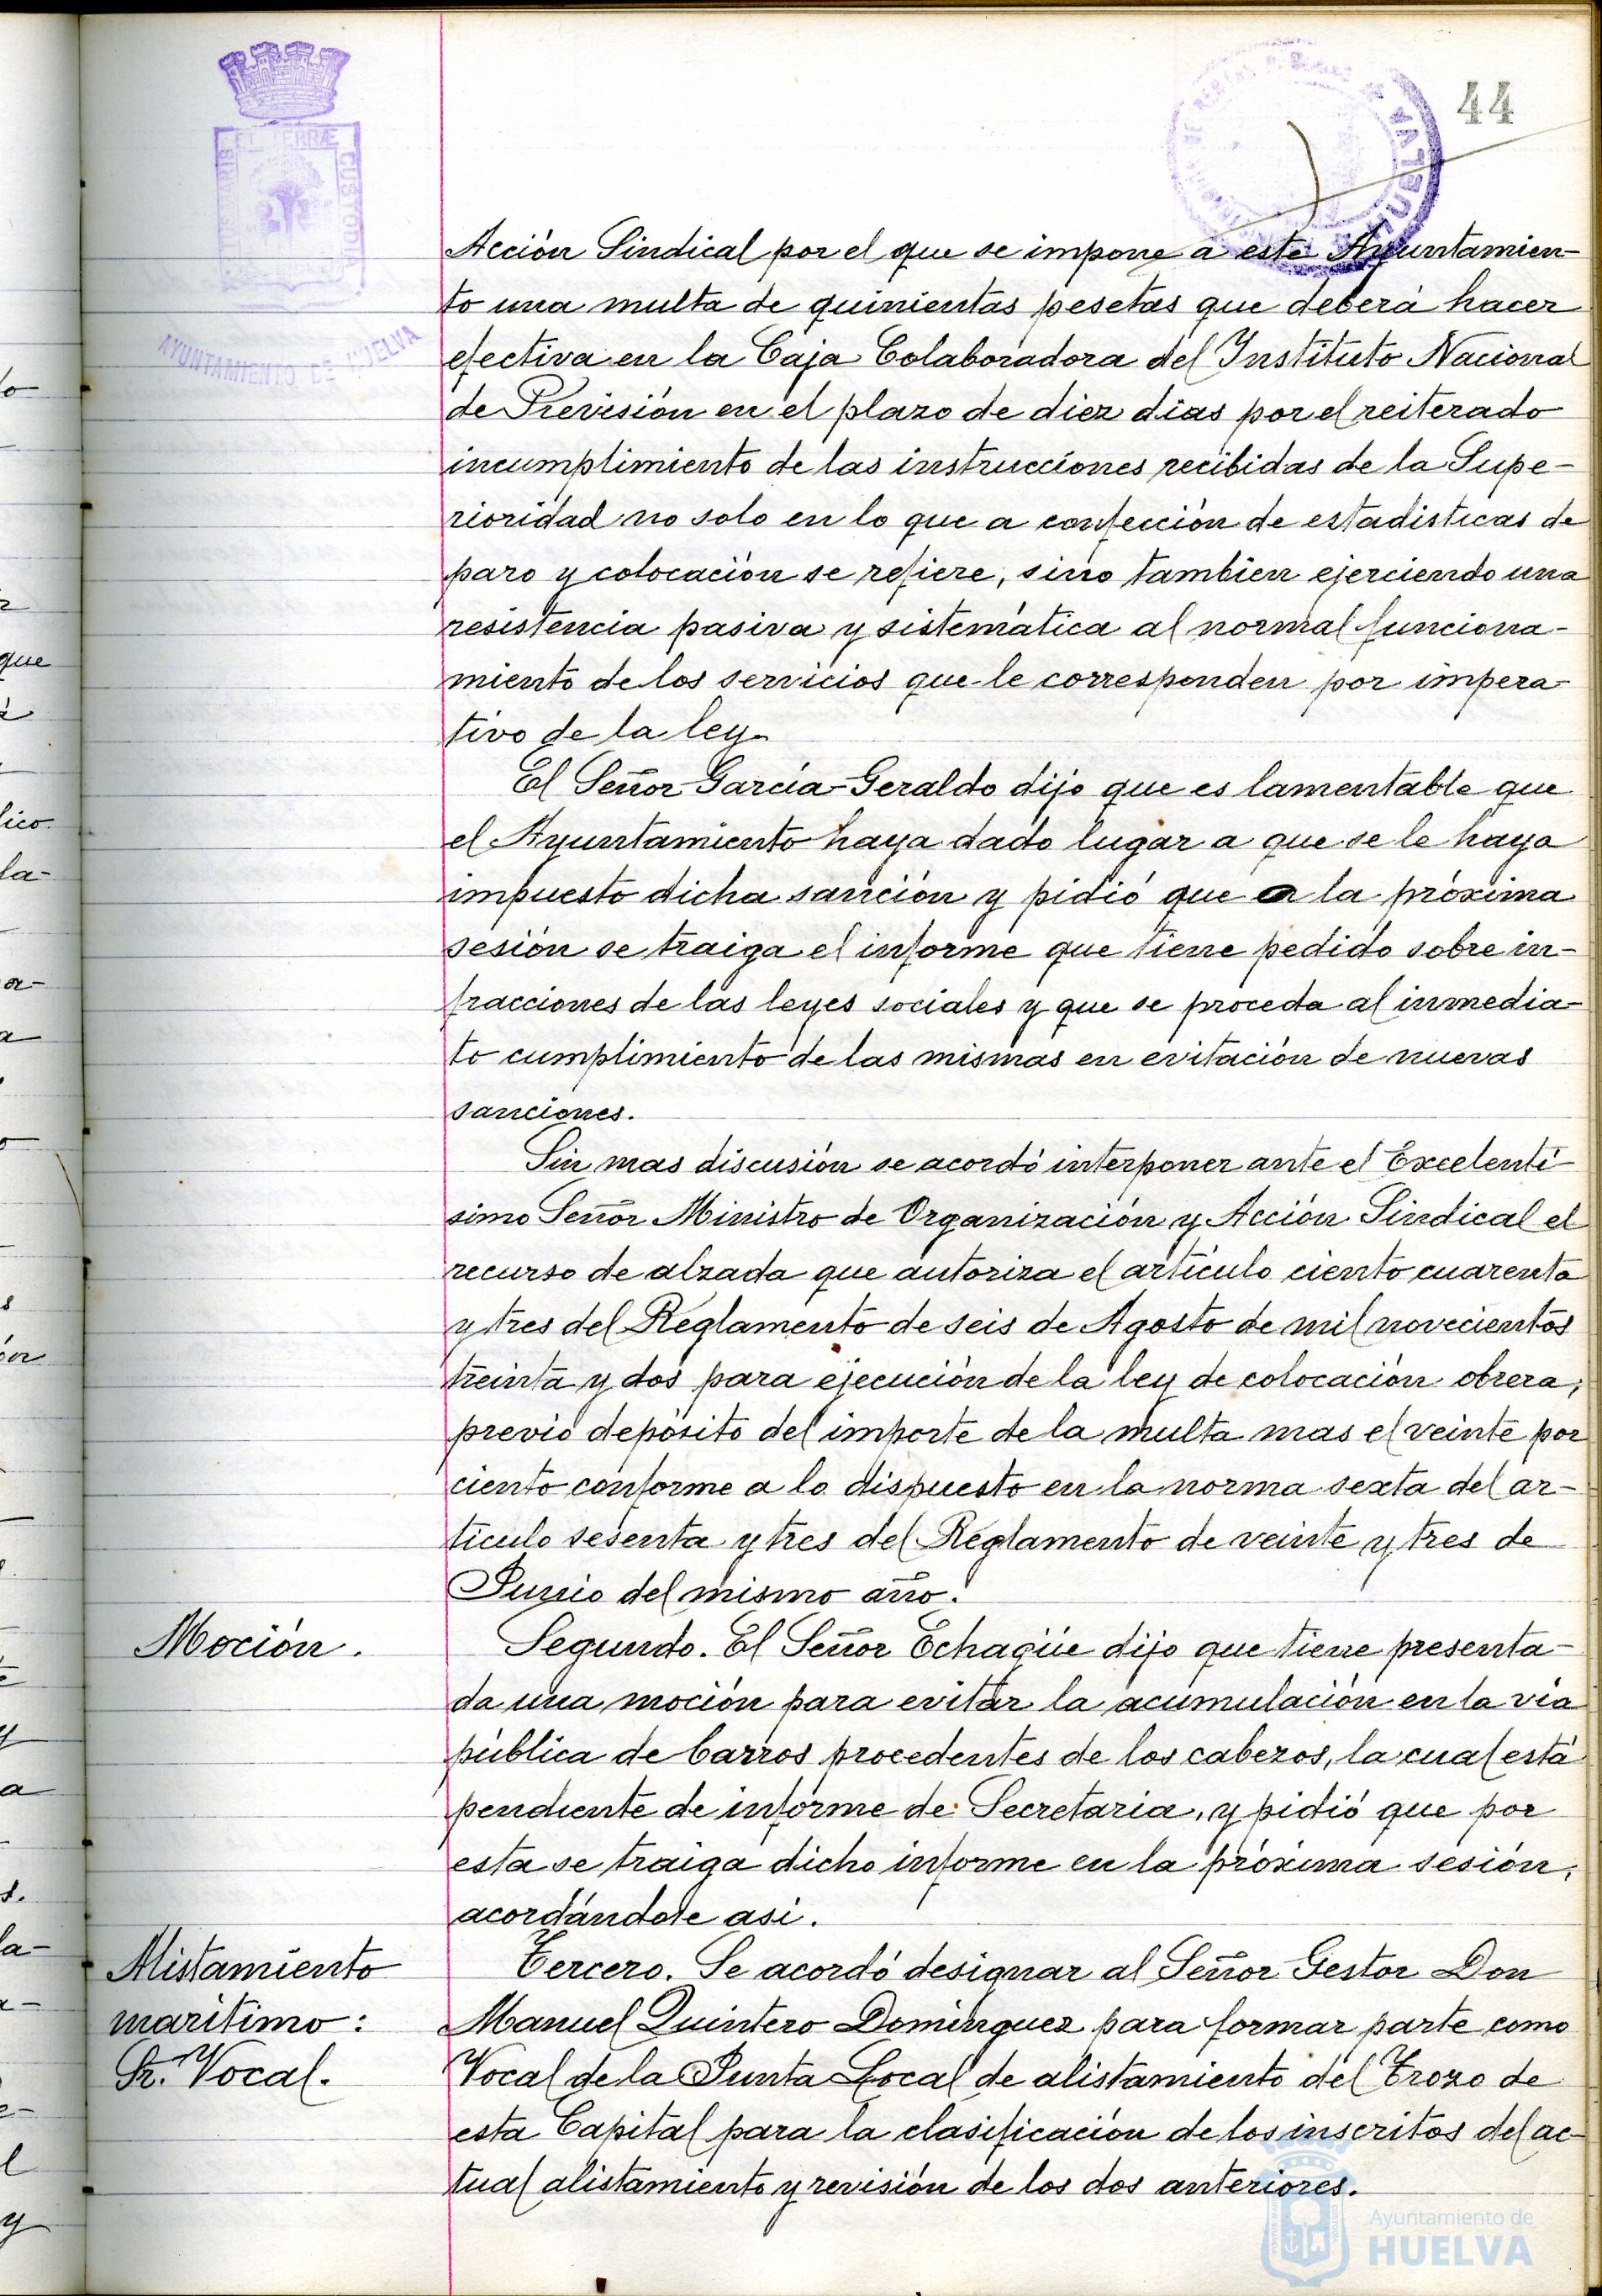 44
PORTUS MARIS ET TERRÆ CUSTODIA
AYUNTAMIENTO DE HUELVA
Acción Sindical por el que se impone a este Ayuntamien-
to una multa de quinientas pesetas que deberá hacer
efectiva en la Caja Colaboradora del Instituto Nacional
de Previsión en el plazo de diez dias por el reiterado
incumplimiento de las instrucciones recibidas de la Supe-
rioridad no solo en lo que a confección de estadisticas de
paro y colocación se refiere, sino tambien ejerciendo una
resistencia pasiva y sistemática al normal funciona-
miento de los servicios que le corresponden por impera-
tivo de la ley.
El Señor García-Geraldo dijo que es lamentable que
el Ayuntamiento haya dado lugar a que se le haya
impuesto dicha sanción y pidió que a la próxima
sesión se traiga el informe que tiene pedido sobre in-
fracciones de las leyes sociales y que se proceda al inmedia-
to cumplimiento de las mismas en evitación de nuevas
sanciones.
Sin mas discusión se acordó interponer ante el Excelentí-
simo Señor Ministro de Organización y Acción Sindical el
recurso de alzada que autoriza el artículo ciento cuarenta
y tres del Reglamento de seis de Agosto de mil novecientos
treinta y dos para ejecución de la ley de colocación obrera,
previo depósito del importe de la multa mas el veinte por
ciento conforme a lo dispuesto en la norma sexta del ar-
tículo sesenta y tres del Reglamento de veinte y tres de
Junio del mismo año.
Moción.
Segundo. El Señor Echagüe dijo que tiene presenta-
da una moción para evitar la acumulación en la vía
pública de barros procedentes de los cabezos, la cual está
pendiente de informe de Secretaria, y pidió que por
esta se traiga dicho informe en la próxima sesión,
acordándose asi.
Alistamiento
marítimo:
Sr. Vocal.
Tercero. Se acordó designar al Señor Gestor Don
Manuel Quintero Dominguez para formar parte como
Vocal de la Junta Local de alistamiento del Trozo de
esta Capital para la clasificación de los inscritos del ac-
tual alistamiento y revisión de los dos anteriores.
Ayuntamiento de
HUELVA